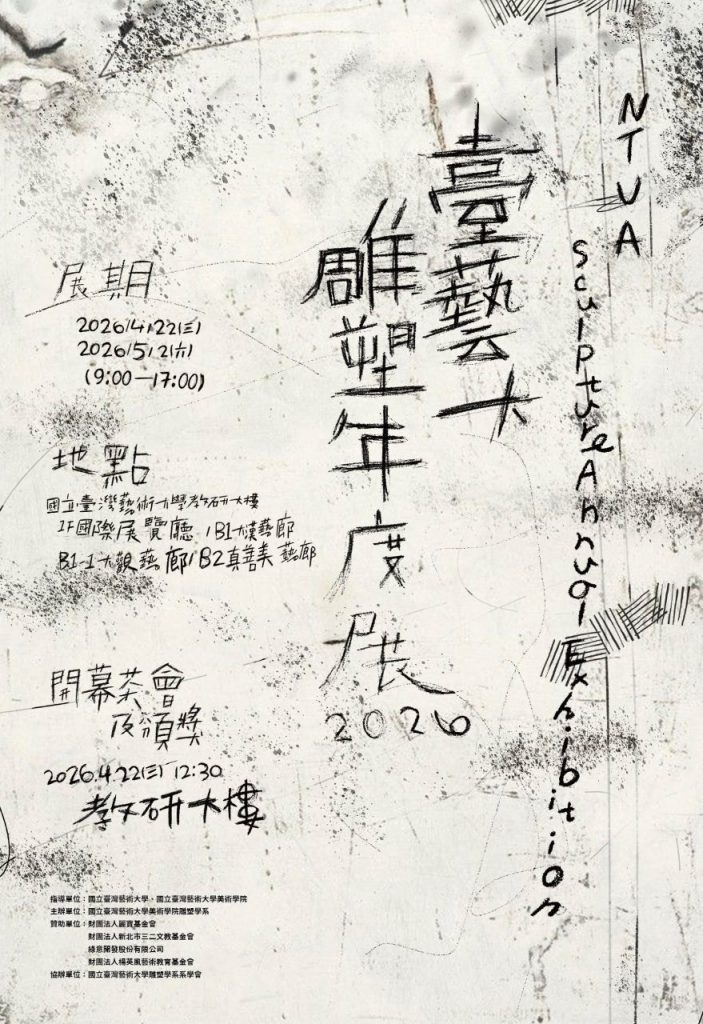 NTUA
Sculpture Annual Exhibition
臺藝大
雕塑年度展
2026
展期
2026/4/22(三)
2026/5/2(六)
(9:00—17:00)
地點
國立臺灣藝術大學教研大樓
1F國際展覽廳/B1大漢藝廊
B1-1大觀藝廊/B2真善美藝廊
開幕茶會
及頒獎
2026.4.22(三)12:30
教研大樓
指導單位：國立臺灣藝術大學、國立臺灣藝術大學美術學院
主辦單位：國立臺灣藝術大學美術學院雕塑學系
贊助單位：財團法人麗寶基金會
財團法人新北市三二文教基金會
綠意開發股份有限公司
財團法人楊英風藝術教育基金會
協辦單位：國立臺灣藝術大學雕塑學系系學會